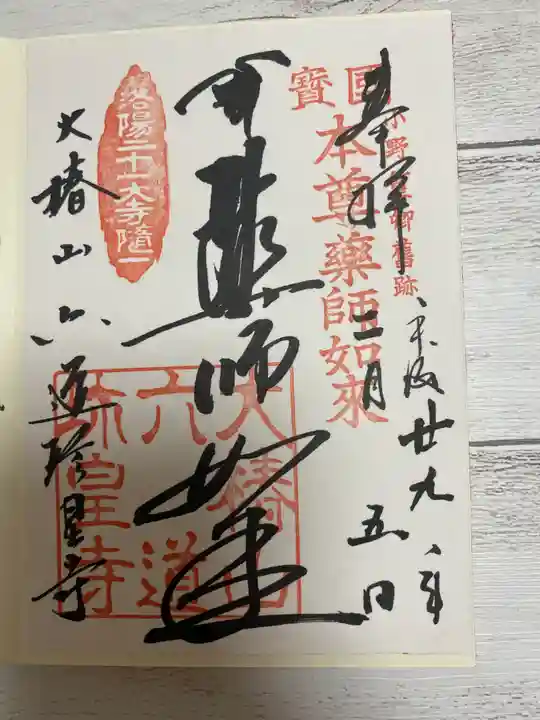 奉拝
平成廿九年
三月五日
小野篁卿舊跡
国寶
本尊薬師如來
薬師如来
洛陽二十一大寺随一
大椿山
六道珍皇寺
大椿山
六道
珎皇寺